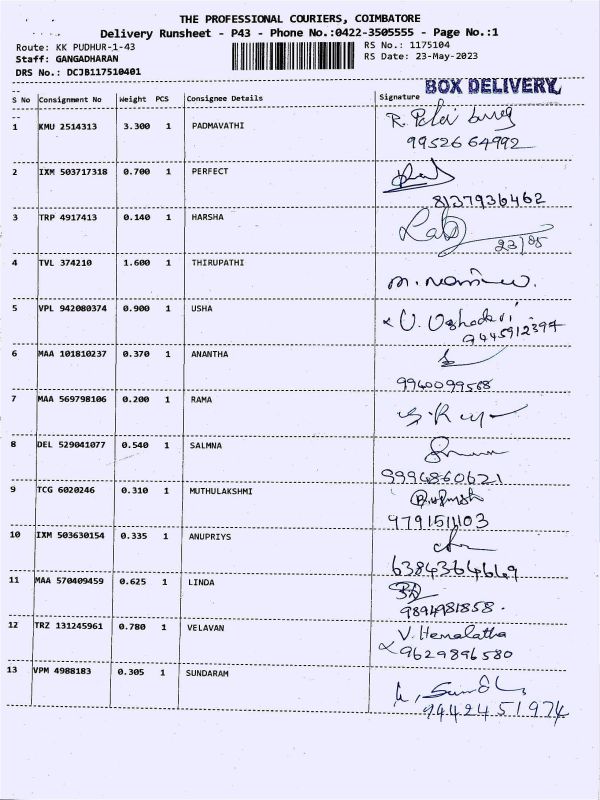 THE PROFESSIONAL COURIERS, COIMBATORE
Delivery Runsheet - P43 - Phone No.:0422-3505555 - Page No.:1
Route: KK PUDHUR-1-43 RS No.: 1175104
Staff: GANGADHARAN RS Date: 23-May-2023
DRS No.: DCJB117510401
BOX DELIVERY
S No Consignment No Weight PCS Consignee Details Signature
1 KMU 2514313 3.300 1 PADMAVATHI
9952664992
2 IXM 503717318 0.700 1 PERFECT
8137936462
3 TRP 4917413 0.140 1 HARSHA
23/05
4 TVL 374210 1.600 1 THIRUPATHI
5 VPL 942080374 0.900 1 USHA
U. Ushadevi
9445912397
6 MAA 101810237 0.370 1 ANANTHA
9940099568
7 MAA 569798106 0.200 1 RAMA
8 DEL 529041077 0.540 1 SALMNA
9994860621
9 TCG 6020246 0.310 1 MUTHULAKSHMI
9791511103
10 IXM 503630154 0.335 1 ANUPRIYS
6384364669
11 MAA 570409459 0.625 1 LINDA
9894981858.
12 TRZ 131245961 0.780 1 VELAVAN
V. Hemalatha
9629896580
13 VPM 4988183 0.305 1 SUNDARAM
9442451974